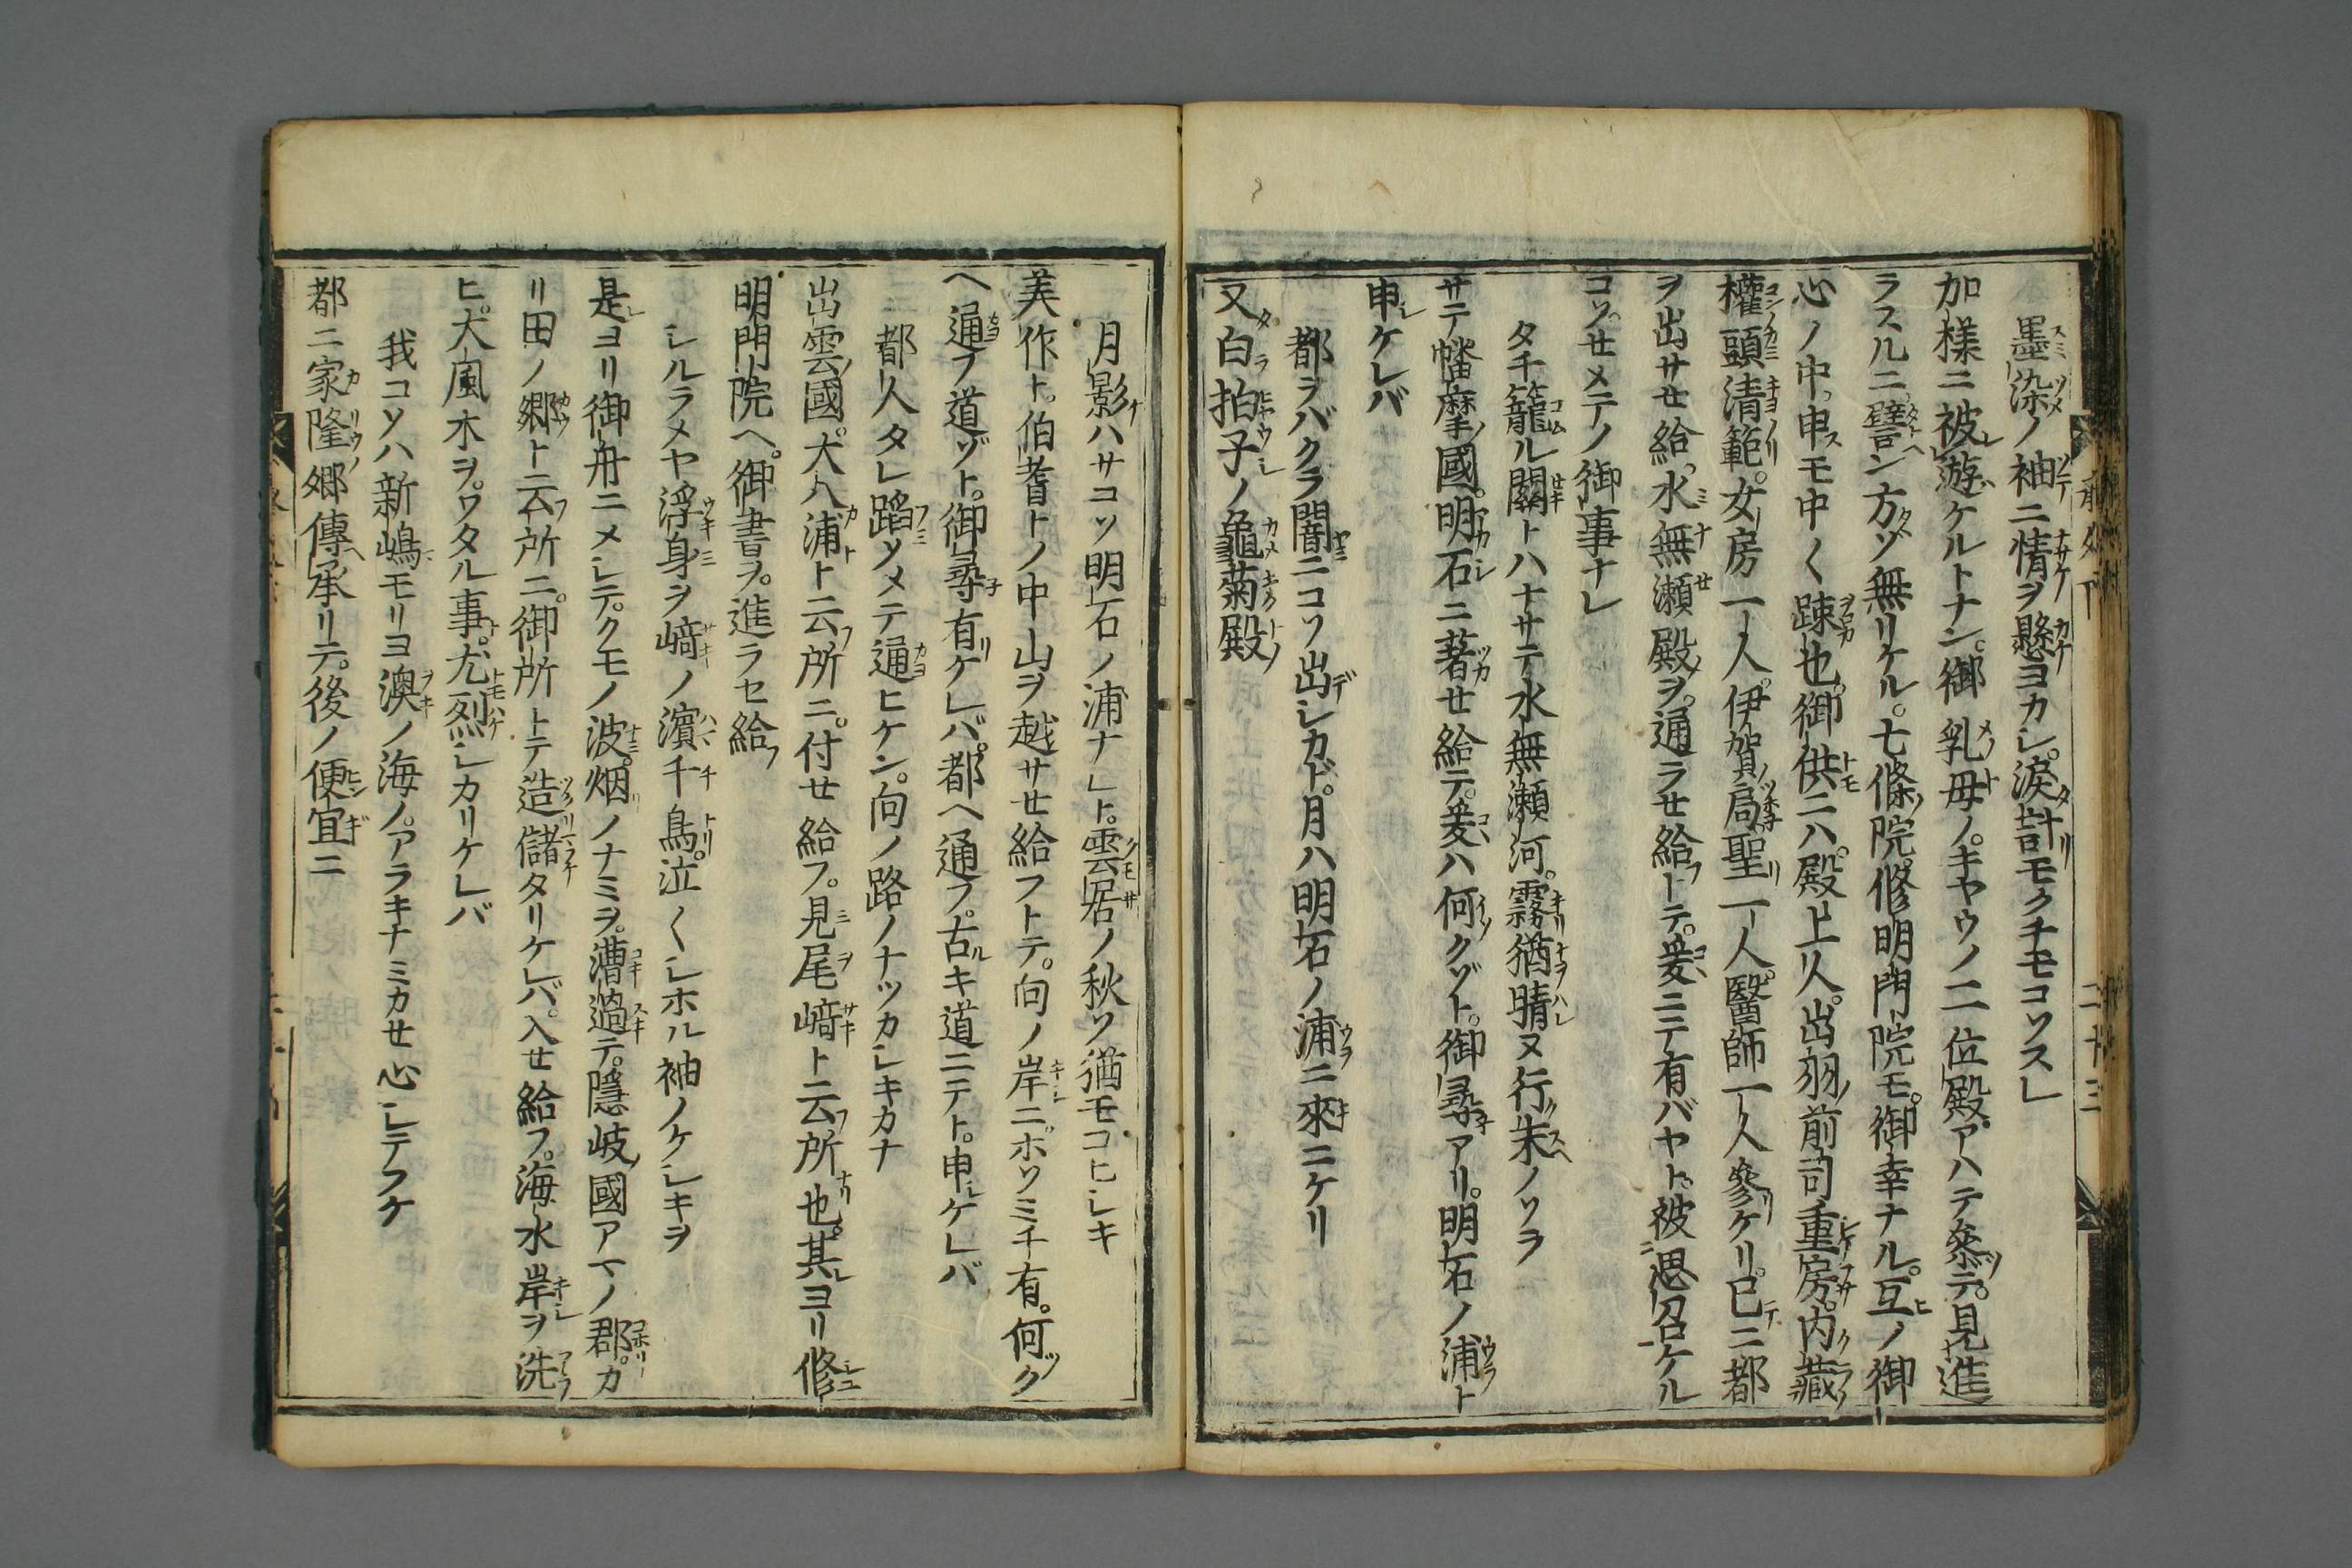 墨染ノ袖ニ情ヲ懸ヨカシ。涙計モクチモコソスレ
加様ニ被レ遊ケルトナン。御乳母ノ。キヤウノ二位殿。アハテ參テ。見進
ラスルニ。譬ン方ソ無リケル。七條院。修明門院モ。御幸ナル。互ノ御
心ノ中。申スモ中〱踈也。御供ニハ。殿上人。出羽前司重房。内藏
權頭清範。女房一人。伊賀局。聖一人。醫師一人參ケリ。已ニ都
ヲ出サセ給。水無瀬殿ヲ。通ラセ給フトテ。爰ニテ有バヤト。被思召ケル
コソ。セメテノ御事ナレ
タチ籠ル關トハナサテ水無瀬河。霧猶晴ヌ行末ノソラ
サテ幡摩國。明石ニ著セ給テ。爰ハ何クゾト。御尋アリ。明石ノ浦ト
申ケレバ
都ヲバクラ闇ニコソ出シカド。月ハ明石ノ浦ニ來ニケリ
又白拍子ノ龜菊殿
月影ハサコソ明石ノ浦ナレト。雲居ノ秋ソ猶モコヒシキ
美作ト。伯耆トノ中山ヲ越サセ給フトテ。向ノ岸ニホソミチ有。何ク
ヘ通フ道ゾト。御尋有ケレバ。都ヘ通フ。古キ道ニテト。申ケレバ
都人タレ蹈ソメテ通ヒケン。向ノ路ノナツカシキカナ
出雲國。大八浦ト云所ニ。付セ給フ。見尾﨑ト云所也。其ヨリ修
明門院ヘ。御書ヲ。進ラセ給フ
シルラメヤ浮身ヲ﨑ノ濱千鳥。泣〱シホル袖ノケシキヲ
是ヨリ御舟ニメシテ。クモノ波。烟ノナミヲ。漕過テ。隱岐國アマノ郡。カ
リ田ノ郷ト云所ニ。御所トテ造儲タリケレバ。入セ給フ。海水岸ヲ洗
ヒ。大風木ヲ。ワタル事。尤烈シカリケレバ
我コソハ新嶋モリヨ澳ノ海ノ。アラキナミカセ心シテフケ
都ニ家隆郷傳承リテ。後ノ便宜ニ